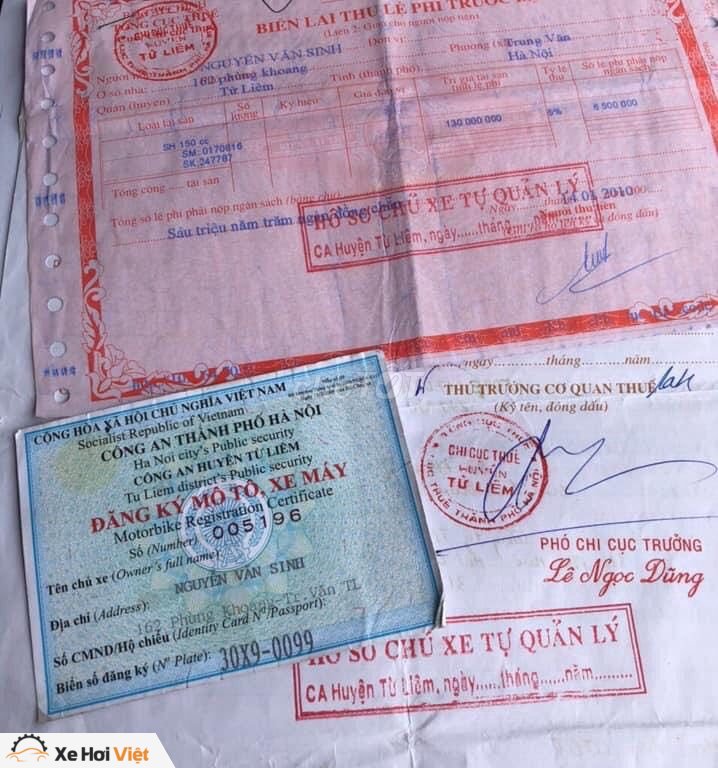 BIÊN LAI THU LỆ PHÍ TRƯỚC
(Liên 2: Giao cho người nộp tiền)
TỔNG CỤC THUẾ
HUYỆN
TỪ LIÊM
NGUYỄN VĂN SINH
Đơn vị:
Ở số nhà: 162 phùng khoang
Phường (xã) Trung Văn
Quận (huyện) Từ Liêm
Tỉnh (thành phố) Hà Nội
Loại tài sản
Số lượng
Ký hiệu
Giá đơn vị
Trị giá tài sản tính lệ phí
Tỷ lệ thu
Số lệ phí phải nộp ngân sách
SH 150 cc
SM: 0170816
SK: 247787
130 000 000
5%
6 500 000
Tổng cộng ..... tài sản
Tổng số lệ phí phải nộp ngân sách (bằng chữ)
Sáu triệu năm trăm ngàn đồng chẵn
Ngày
01 2010
HỒ SƠ CHỦ XE TỰ QUẢN LÝ
CA Huyện Từ Liêm, ngày......tháng......năm
......, ngày......tháng......năm......
THỦ TRƯỞNG CƠ QUAN THUẾ
(Ký tên, đóng dấu)
TỔNG CỤC THUẾ
CHI CỤC THUẾ
HUYỆN
TỪ LIÊM
CỤC THUẾ THÀNH PHỐ HÀ NỘI
PHÓ CHI CỤC TRƯỞNG
Lê Ngọc Dũng
HỒ SƠ CHỦ XE TỰ QUẢN LÝ
CA Huyện Từ Liêm, ngày......tháng......năm.........
CỘNG HÒA XÃ HỘI CHỦ NGHĨA VIỆT NAM
Socialist Republic of Vietnam
CÔNG AN THÀNH PHỐ HÀ NỘI
Ha Noi city's Public security
CÔNG AN HUYỆN TỪ LIÊM
Tu Liem district's Public security
ĐĂNG KÝ MÔ TÔ, XE MÁY
Motorbike Registration Certificate
Số (Number): 005196
Tên chủ xe (Owner's full name):
NGUYỄN VĂN SINH
Địa chỉ (Address):
162 Phùng Khoang-Tr.Văn TL
Số CMND/Hộ chiếu (Identity Card N°/Passport):
Biển số đăng ký (N° Plate): 30X9-0099
Xe Hơi Việt